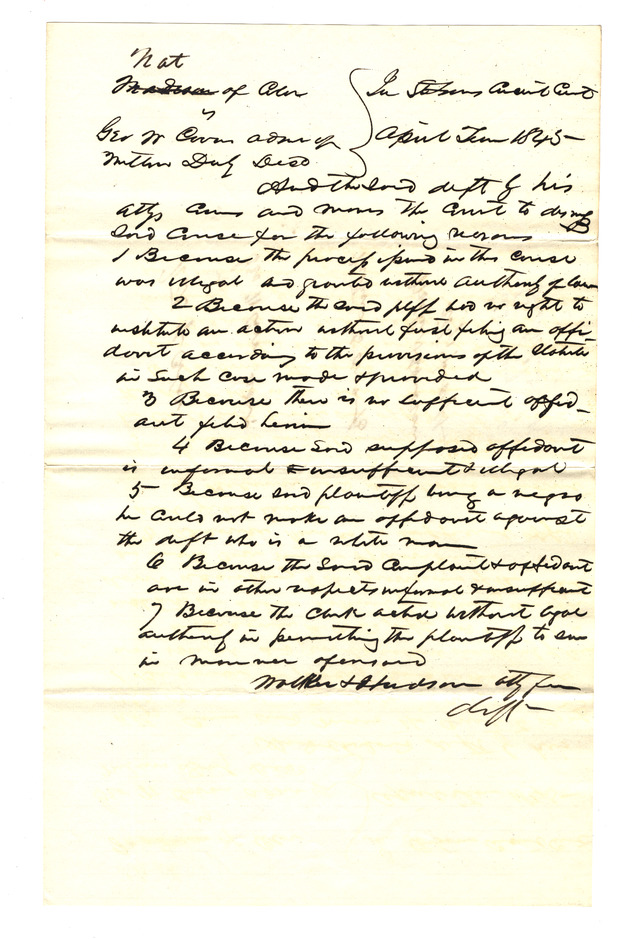 Nat
Madison of Color } In Stsons Circuit Court
vs
Geo W Coons admr of } April Term 1845
Milton Duty Decd
And the said deft by his
attys comes and moves the Court to dismiss
said Cause for the following reasons
1 Because the process issued in this cause
was illegal and granted without authority of law
2 Because the said plff had no right to
institute an action without first filing an affi-
davit according to the provisions of the Statute
in such case made & provided
3 Because there is no sufficient affid-
avit filed herein
4 Because said supposed affidavit
is informal & insufficient & illegal
5 Because said plaintiff being a negro
he could not make an affidavit against
the deft who is a white man
6 Because the said Complaint & affidavit
are in other respects informal & insufficient
7 Because the clerk acted without legal
authority in permitting the plaintiff to sue
in manner aforesaid
Walker & Hudson atty for
deft